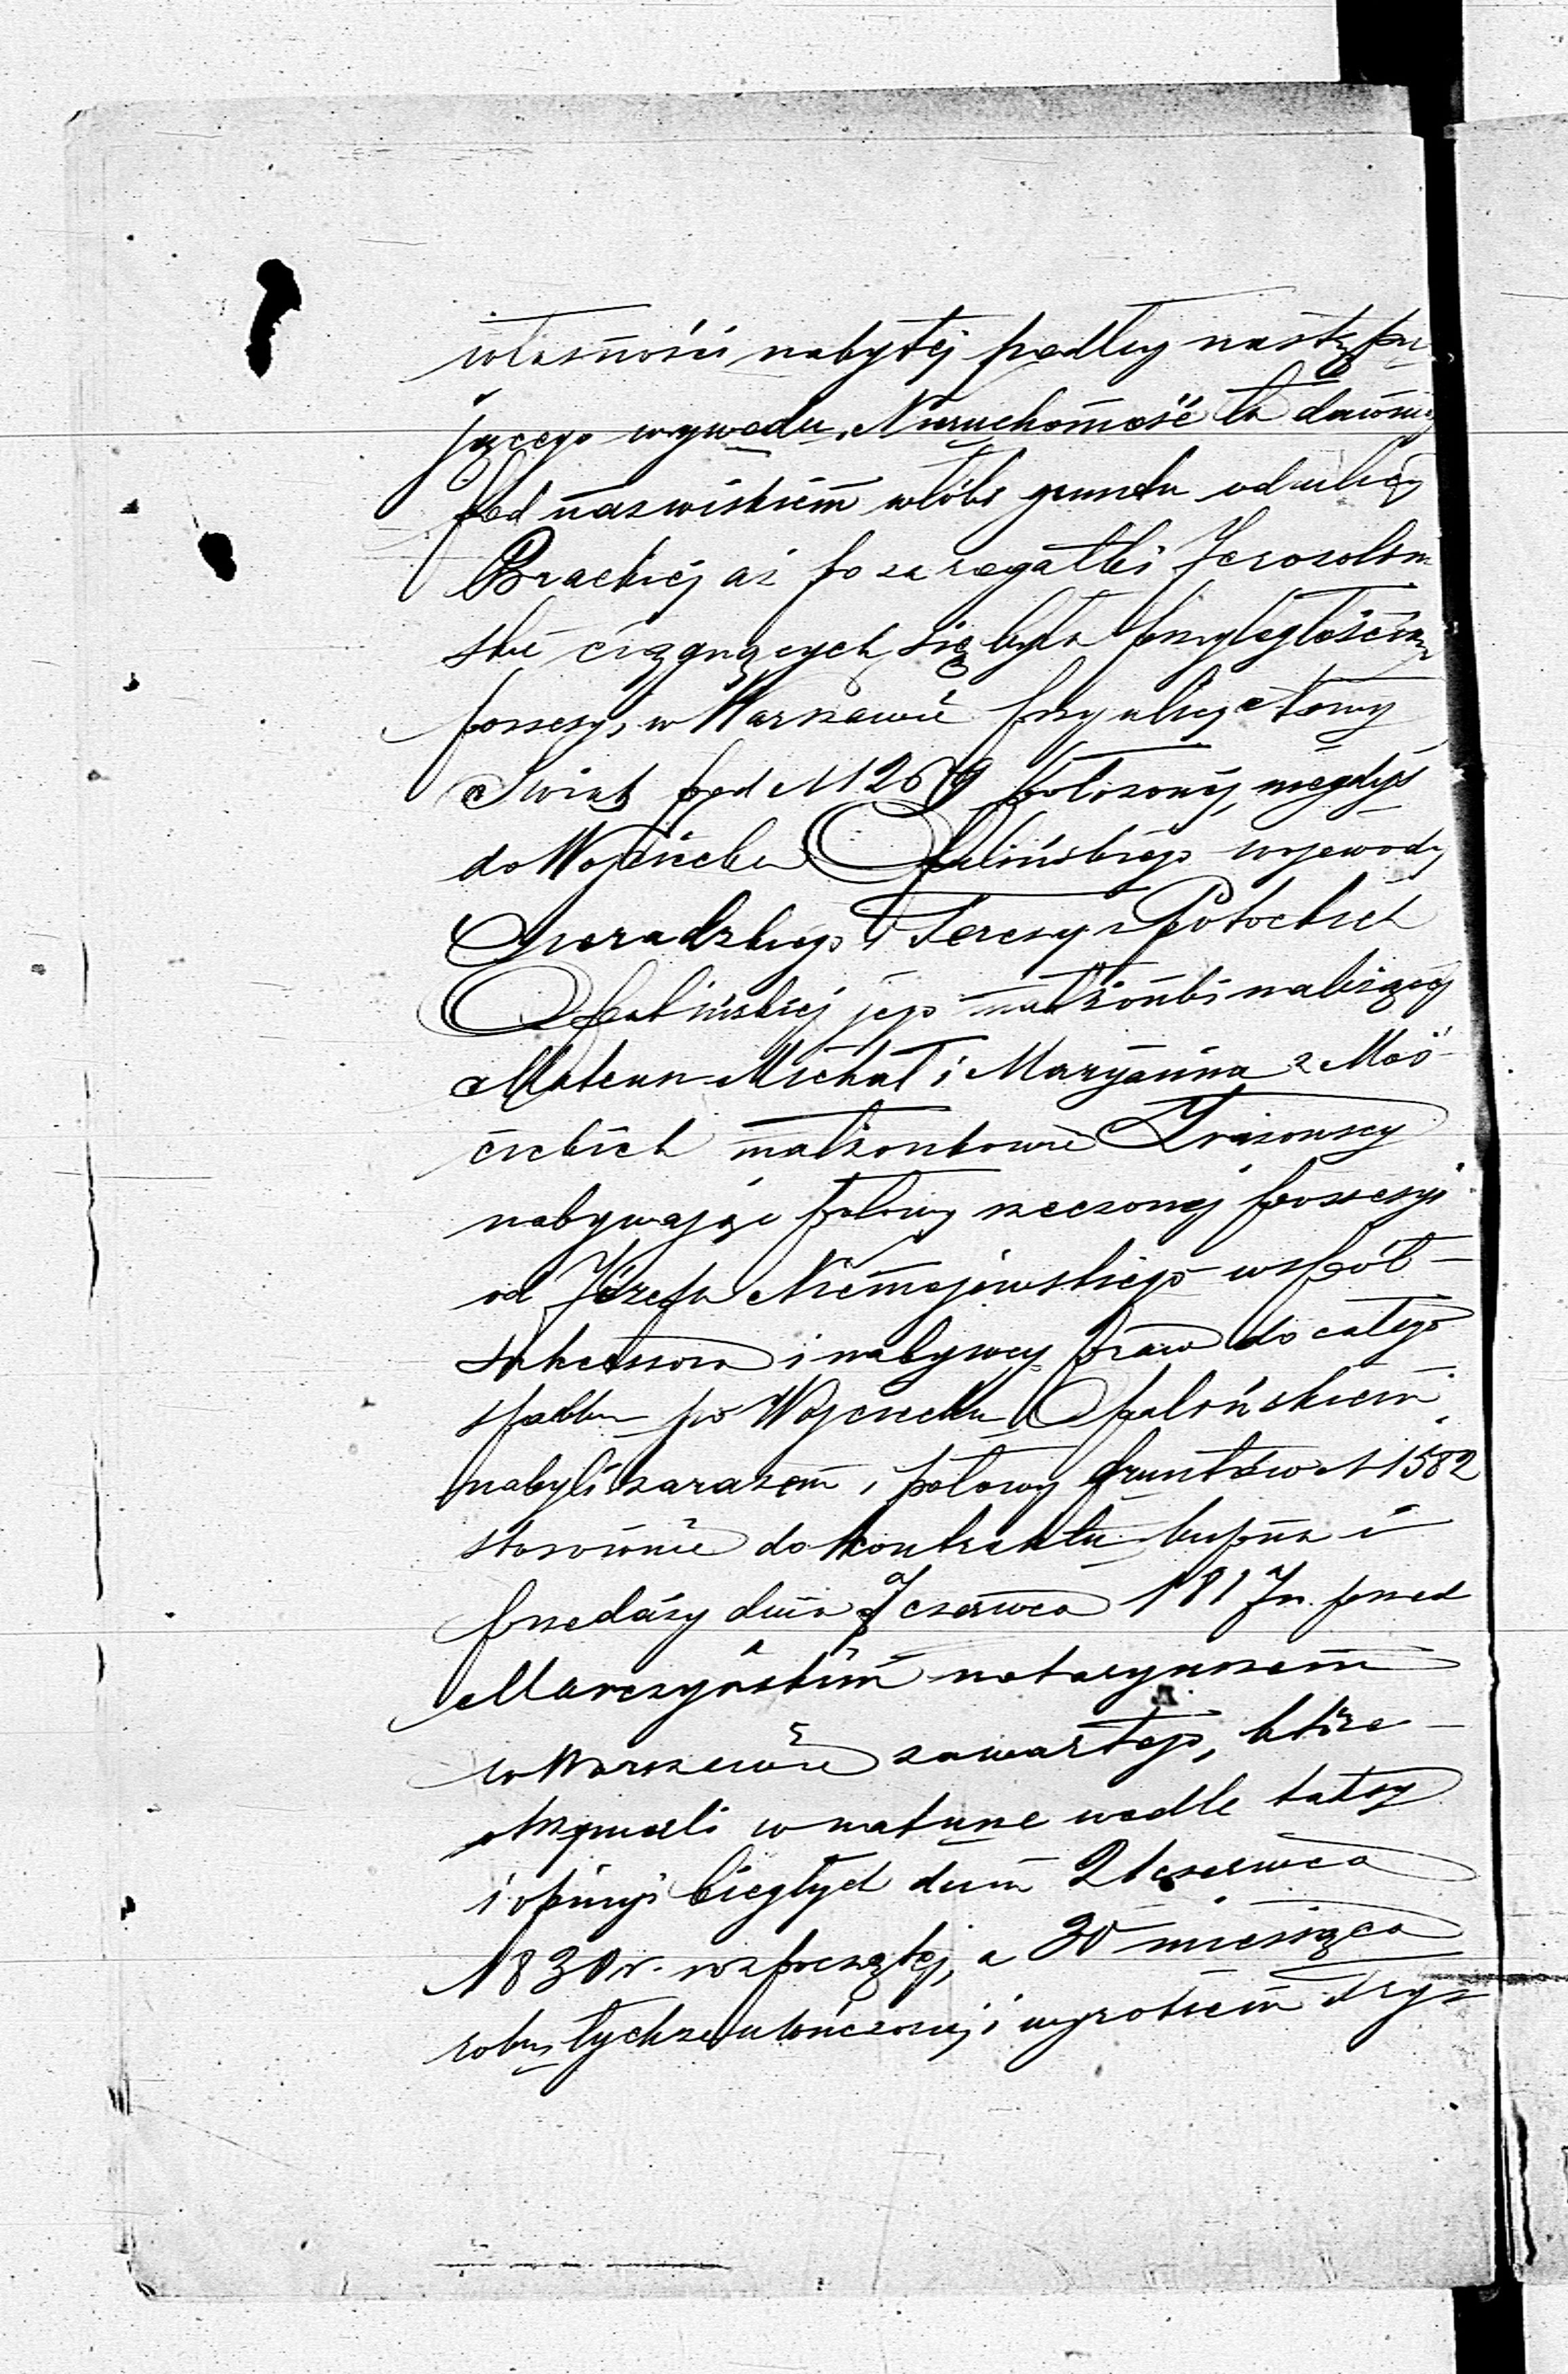 własności nabytej podług następu
jącego wywodu. Nieruchomość ta dawniej
pod nazwiskiem włóki gruntu od ulicy
Brackiej aż po za rogatki Jerozolim
skie ciągnących się była przyległością
possesyi w Warszawie przy ulicy Nowy
Świat pod N 1269 położonej, niegdyś
do Wojciecha Opalińskiego wojewody
Sieradzkiego i Teresy z Potockich
Opalińskiej jego małżonki należącej
Mateusz Michał i Maryanna z Moś-
cickich małżonkowie
nabywając połowę rzeczonej possesyi
od Józefa Niemojewskiego współ-
sukcessora i nabywcy praw do całego
spadku po Wojciechu Opalińskiem
nabyli zarazem i połowę gruntów N 1582
stosownie do kontraktu kupna i
przedaży dnia 7 czerwca 1817 r. przed
Marczyńskim notaryuszem
w Warszawie zawartego, które
otrzymali w naturze wedle taksy
i opinyi biegłych dnia 21 czerwca
1830 r. rozpoczętej, a 30 miesiąca
roku tychże ukończonej i wyrokiem Try-